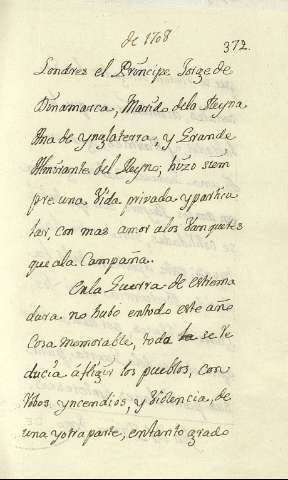 de 1708
372.
Londres el Principe Jorge de
Dinamarca, Marido dela Reyna
Ana de Ynglaterra, y Grande
Almirante del Reyno; hizo siem
pre una Vida privada y particu
lar, con mas amor alos Vanquetes
que ala Campaña.
Enla Guerra de estrema
dura no hubo entodo este año
Cosa memorable, toda la se re
ducia áfligir los pueblos, con
robos yncendios, y Violencia, de
una yotra parte, entanto grado